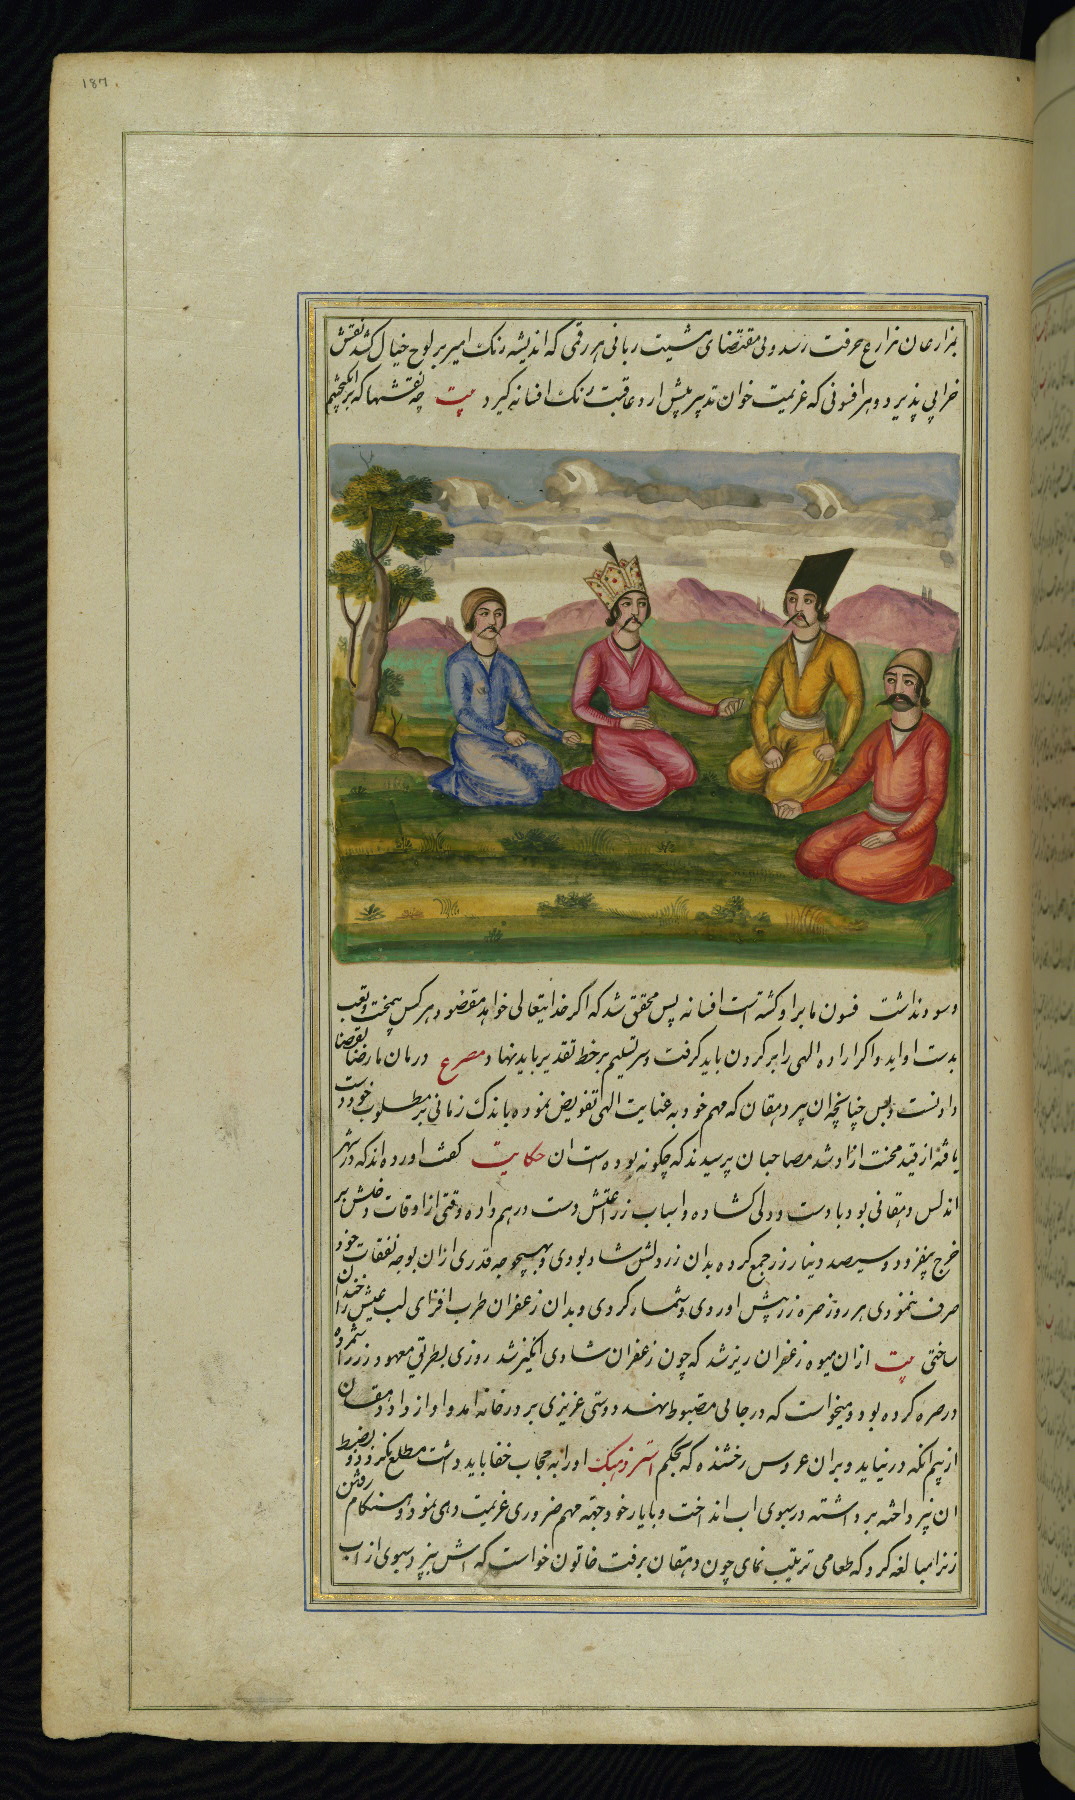 187
بزارعان مزارع حرفت رسد و بی مقتضای مشیت ربانی هر رقمی که اندیشه رنک امیر بر لوح خیال کشد نقش
خرابی پذیرد و هر افسونی که عزیمت خوان تدبیر پیش ارد عاقبت رنک افسانه کیرد بیت چه نقشها که برانکیختیم
و سود نداشت فسون ما بر او کشته است افسانه پس محقق شد که اکر خدایتعالی خواهد مقصود هر کس بیمحنت و تعب
بدست او اید و اکر اراده الهی را بر کردن باید کرفت و سر تسلیم بر خط تقدیر باید نهاد مصرع درمان ما رضا بقضا
دادنست و بس چنانچه ان پیر دهقان که مهم خود به عنایت الهی تفویض نموده باندک زمانی بر مطلوب خود دست
یافته از قید محنت ازاد شد مصاحبان پرسیدند که چکونه بوده است ان حکایت کفت اورده اند که در شهر
اندلس دهقانی بود با دست و دلی کشاده و اسباب زراعتش دست در هم داده وقتی از اوقات دخلش بر
خرج بیفزود و سیصد دینار زر جمع کرده بدان زر دلش شاد بودی و بهیچوجه قدری ازان بوجه نفقات خود
صرف ننمودی هر روز صره زر پیش اوردی و شمار کردی و بدان زعفران طرب افزای لب عیش را خندان
ساختی بیت ازان میوه زعفران ریز شد که چون زعفران شادی انکیز شد روزی بطریق معهود زر را شمرده
در صره کرده بود و میخواست که در جائی مضبوط نهد دوستی عزیزی بر در خانه امد و اواز داد دهقان
از بیم انکه در نیاید و بران عروس رخشنده که بحکم استر ذهبک او را به حجاب خفا باید داشت مطلع نکردد بضبط
ان نپرداخته برداشته در سبوی اب انداخت و با یار خود جهة مهم ضروری عزیمت دهی نمود و هنکام رفتن
زنرا مبالغه کرد که طعامی ترتیب نمای چون دهقان برفت خاتون خواست که اش بپزد سبوی از اب